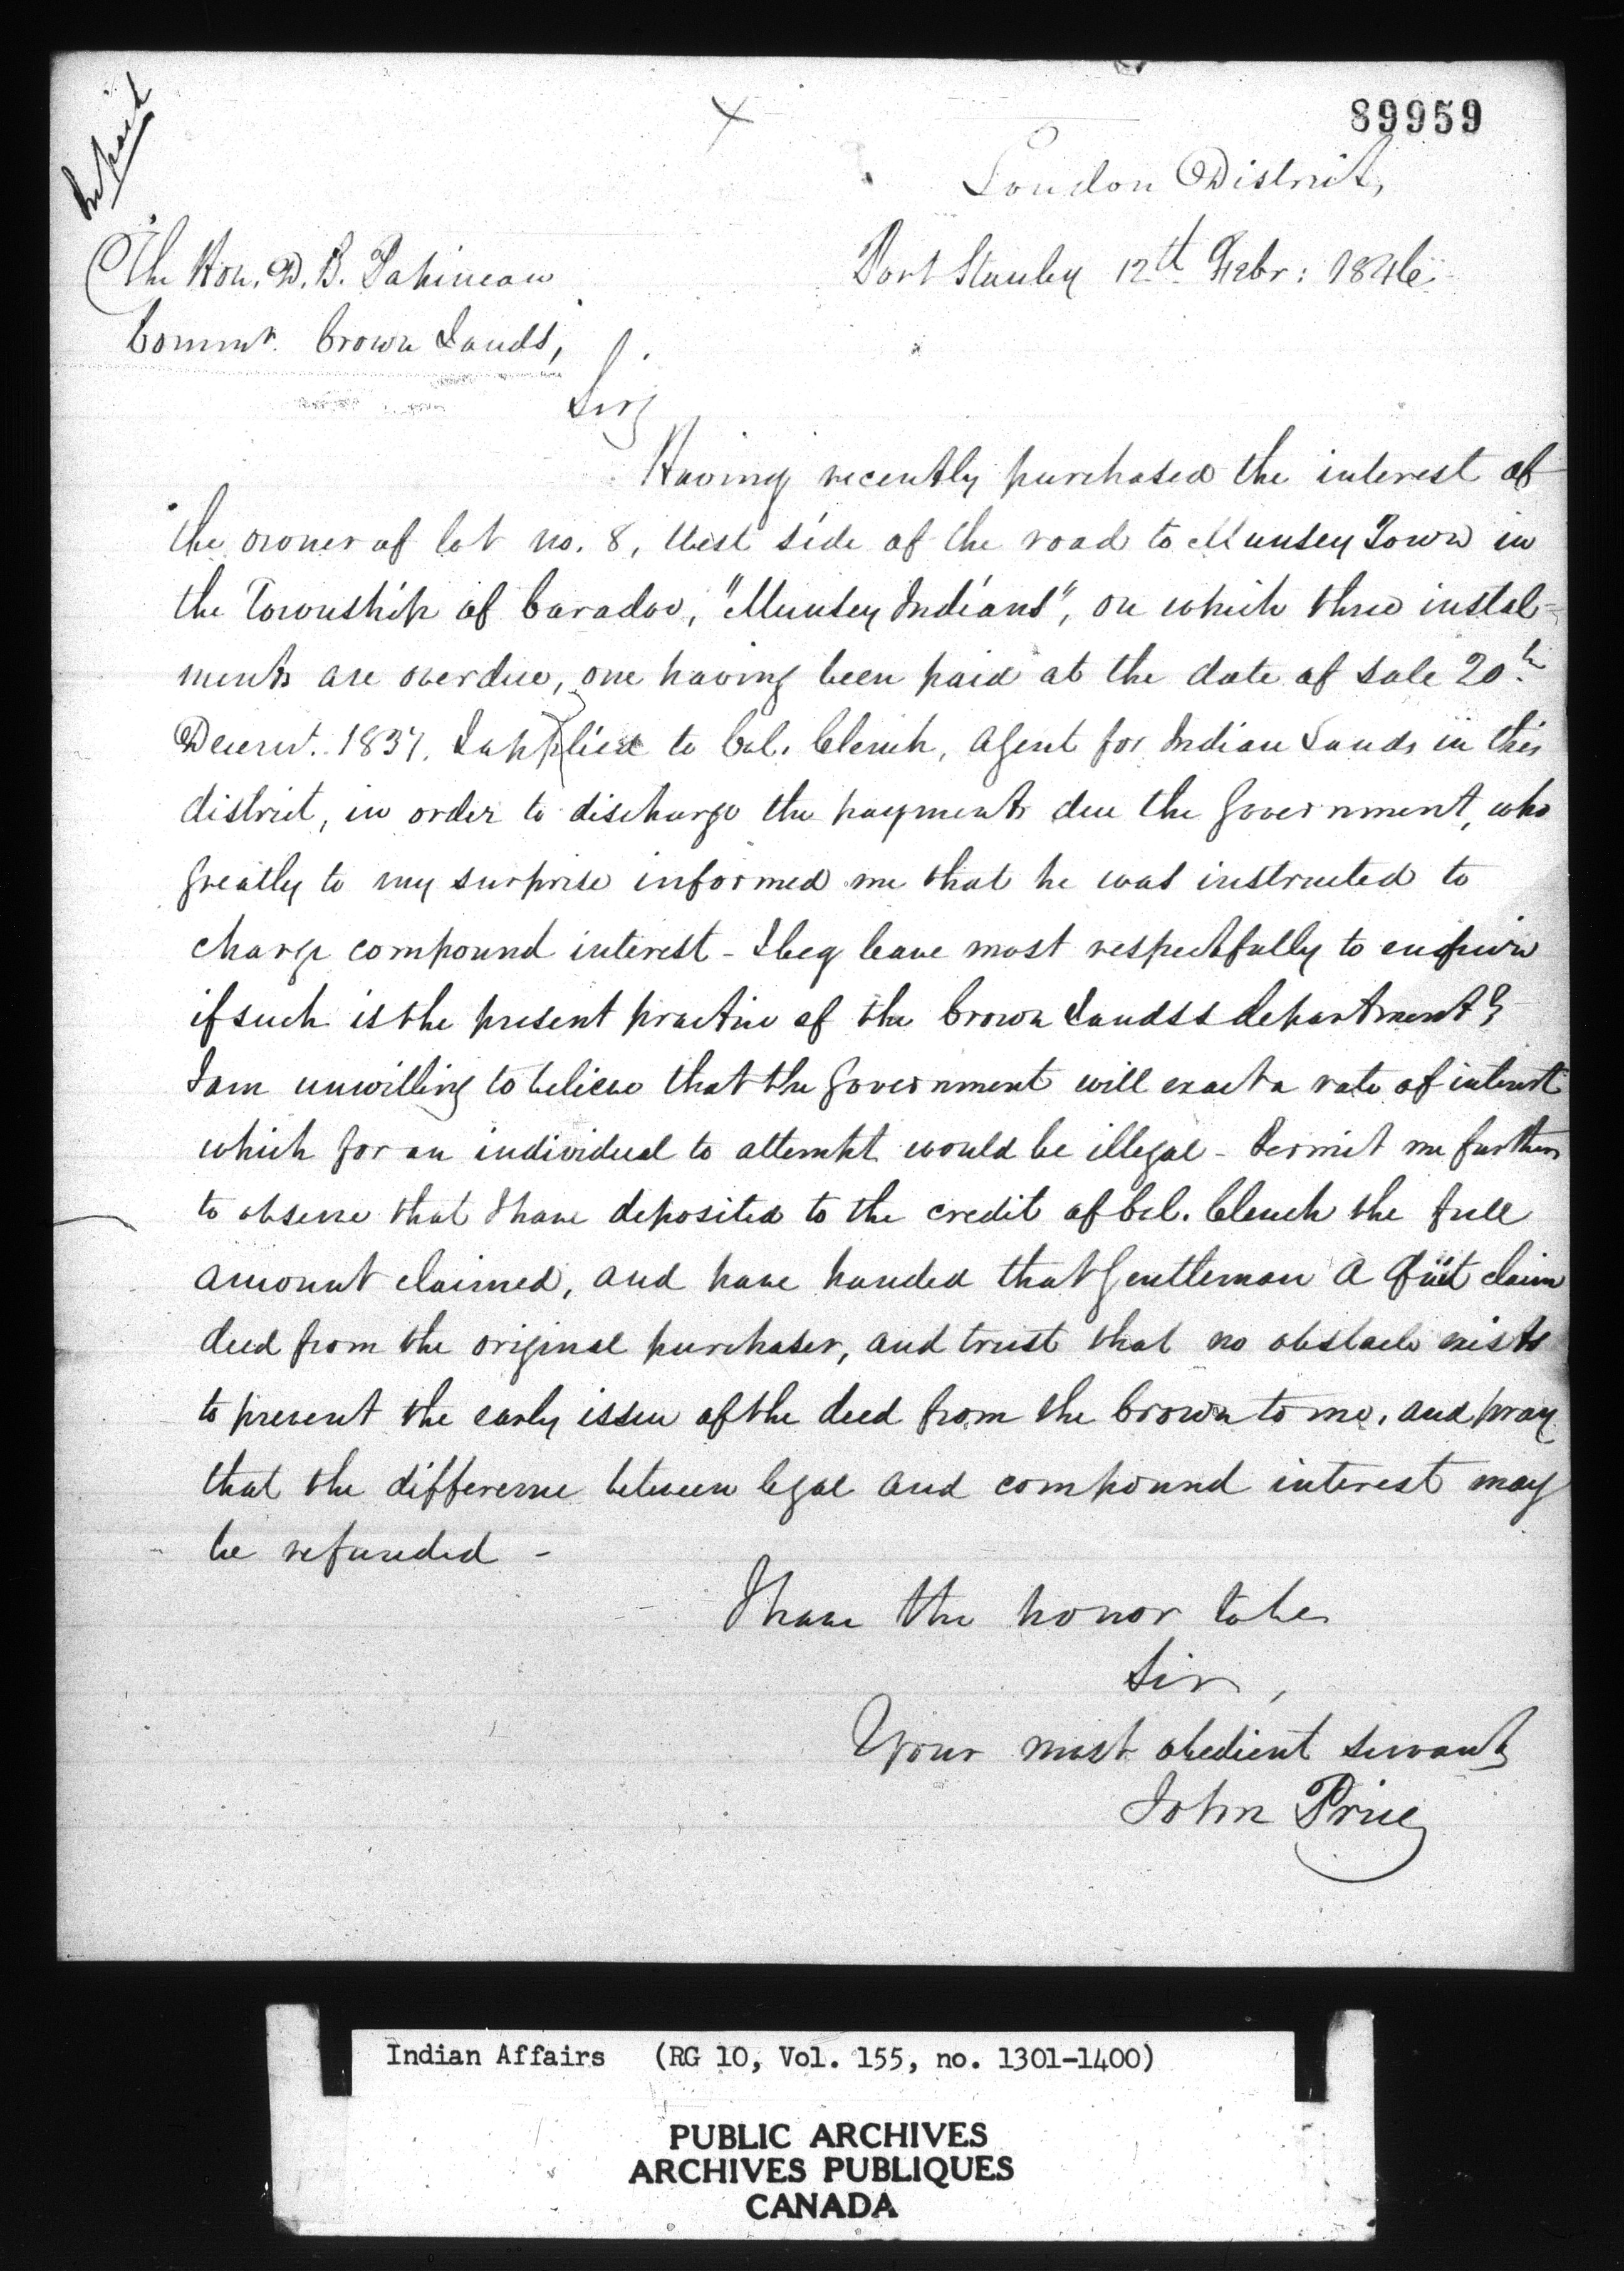 89959
London District,
Port Stanley 12th Febr: 1846.
The Hon. D. B. Papineau
Commr. Crown Lands,
Sir,
Having recently purchased the interest of
the owner of lot no. 8, West side of the road to Munsey Town in
the Township of Caradoc, "Munsey Indians", on which three instal-
ments are overdue, one having been paid at the date of sale 20th
Decemr. 1837. I applied to Col. Clench, agent for Indian Lands in this
district, in order to discharge the payments due the Government, who
greatly to my surprise informed me that he was instructed to
charge compound interest - I beg leave most respectfully to enquire
if such is the present practice of the Crown Landss department?
I am unwilling to believe that the Government will exact a rate of interest
which for an individual to attempt would be illegal - Permit me further
to observe that I have deposited to the credit of Col. Clench the full
amount claimed, and have handed that Gentleman a Quit claim
deed from the original purchaser, and trust that no obstacle exists
to prevent the early issue of the deed from the Crown to me, and pray
that the difference between legal and compound interest may
be refunded -
I have the honor to be
Sir,
Your most obedient servant
John Price
Indian Affairs (RG 10, Vol. 155, no. 1301-1400)
PUBLIC ARCHIVES
ARCHIVES PUBLIQUES
CANADA